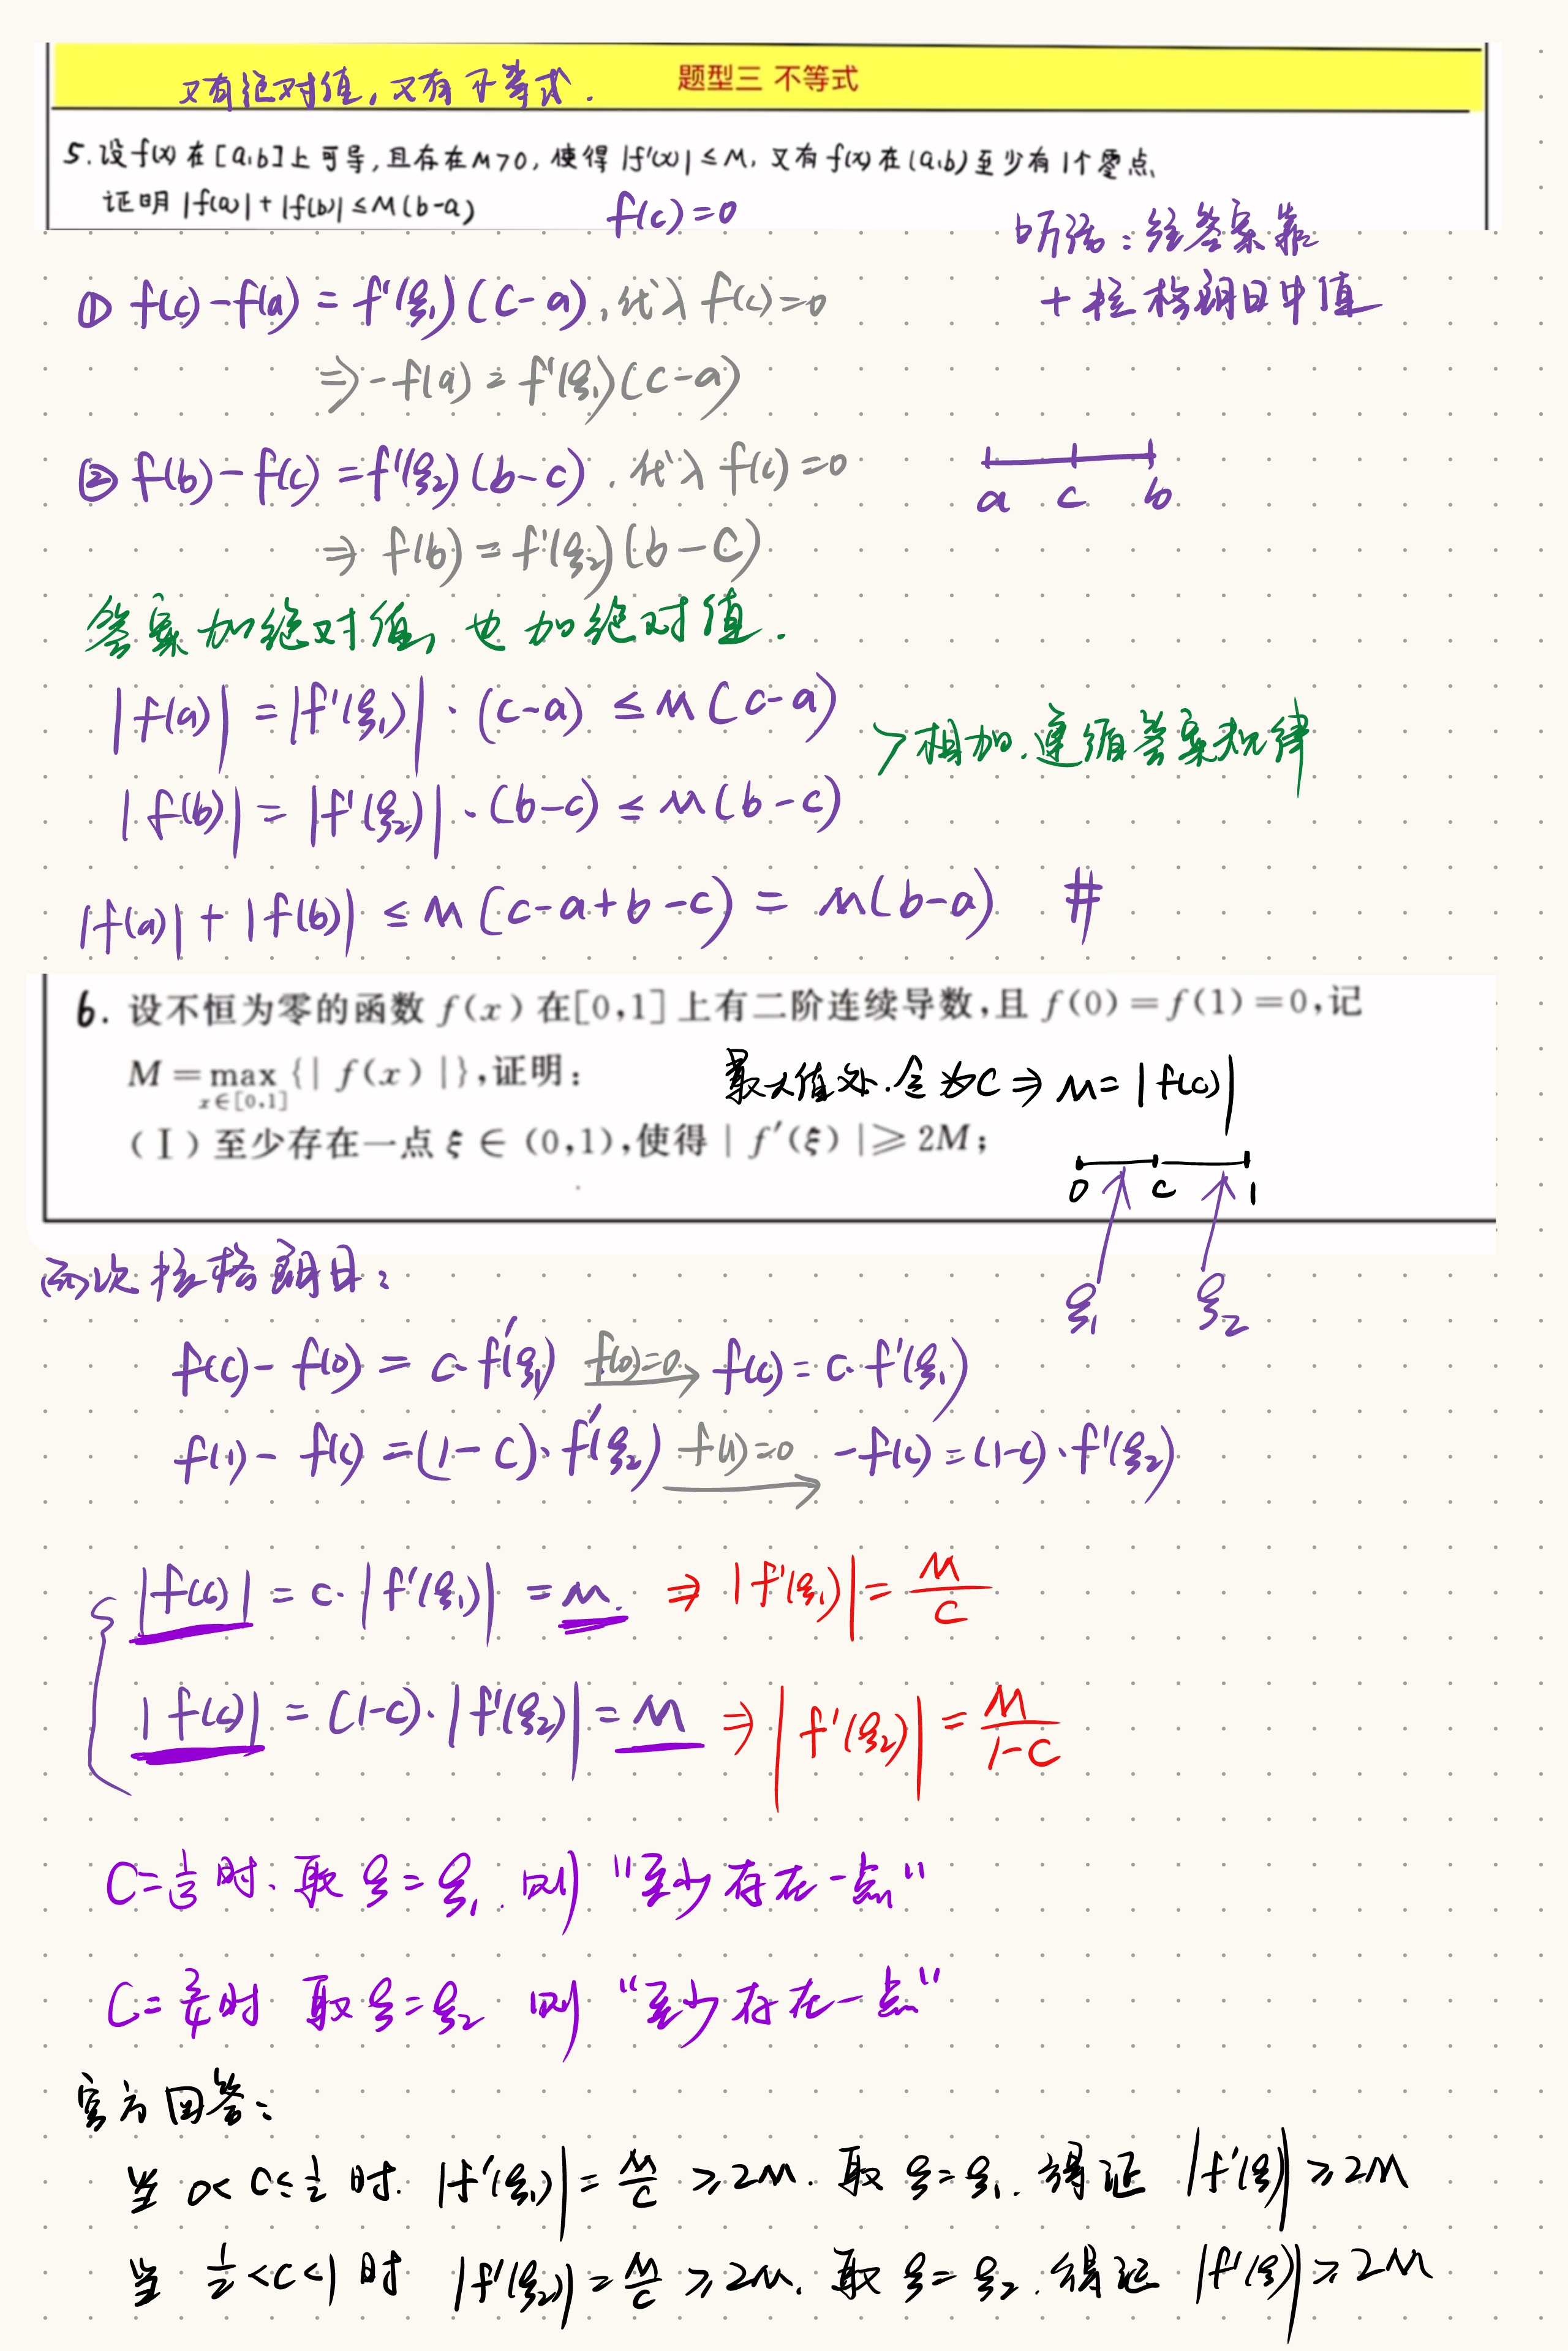 又有绝对值,又有不等式.
题型三 不等式
5.设f(x)在[a,b]上可导,且存在M>0,使得|f'(x)|≤M,又有f(x)在(a,b)至少有1个零点、
证明|f(a)|+|f(b)|≤M(b-a)
f(c)=0
方法:往答案靠
+拉格朗日中值
① f(c)-f(a)=f'(ξ₁)(c-a),代入f(c)=0
⇒-f(a)=f'(ξ₁)(c-a)
② f(b)-f(c)=f'(ξ₂)(b-c).代入f(c)=0
a c b
⇒ f(b)=f'(ξ₂)(b-c)
答案加绝对值,也加绝对值.
|f(a)|=|f'(ξ₁)|·(c-a)≤M(c-a)
>相加.遵循答案规律
|f(b)|=|f'(ξ₂)|·(b-c)≤M(b-c)
|f(a)|+|f(b)|≤M[c-a+b-c)=M(b-a) #
6. 设不恒为零的函数f(x)在[0,1]上有二阶连续导数,且f(0)=f(1)=0,记
M=max{|f(x)|},证明:
x∈[0,1]
最大值处.令为c⇒M=|f(c)|
(Ⅰ)至少存在一点ξ∈(0,1),使得|f'(ξ)|≥2M;
0 c 1
ξ₁ ξ₂
两次拉格朗日:
f(c)-f(0)=c·f'(ξ₁) f(0)=0→ f(c)=c·f'(ξ₁)
f(1)-f(c)=(1-c)·f'(ξ₂) f(1)=0→ -f(c)=(1-c)·f'(ξ₂)
|f(c)|=c·|f'(ξ₁)|=M. ⇒|f'(ξ₁)|=M/c
|f(c)|=(1-c)·|f'(ξ₂)|=M ⇒|f'(ξ₂)|=M/1-c
C=1/3时、取ξ=ξ₁.则"至少存在一点"
C=3/4时 取ξ=ξ₂ 则"至少存在一点"
官方回答:
当 0<c≤1/2 时.|f'(ξ₁)|=M/c≥2M.取ξ=ξ₁.得证|f'(ξ)|≥2M
当 1/2<c<1时 |f'(ξ₂)|=M/c≥2M.取ξ=ξ₂.得证|f'(ξ)|≥2M